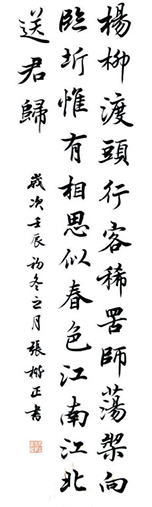 楊柳渡頭行客稀罟師蕩槳向
臨圻惟有相思似春色江南江北
送君歸
歲次壬辰初冬之月張楷正書